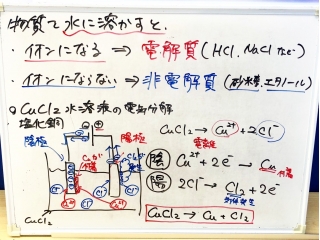 物質を水に溶かすと、
・イオンになる ⇒ 電解質(HCl, NaCl など)
・イオンにならない ⇒ 非電解質(砂糖、エタノール)
◎CuCl2 水溶液の電気分解
塩化銅
陰極
陽極
CuCl2
CuCl2 → Cu²⁺ + 2Cl⁻
電離
陰 Cu²⁺ + 2e⁻ → Cu 付着
陽 2Cl⁻ → Cl2 + 2e⁻
気体発生
CuCl2 → Cu + Cl2